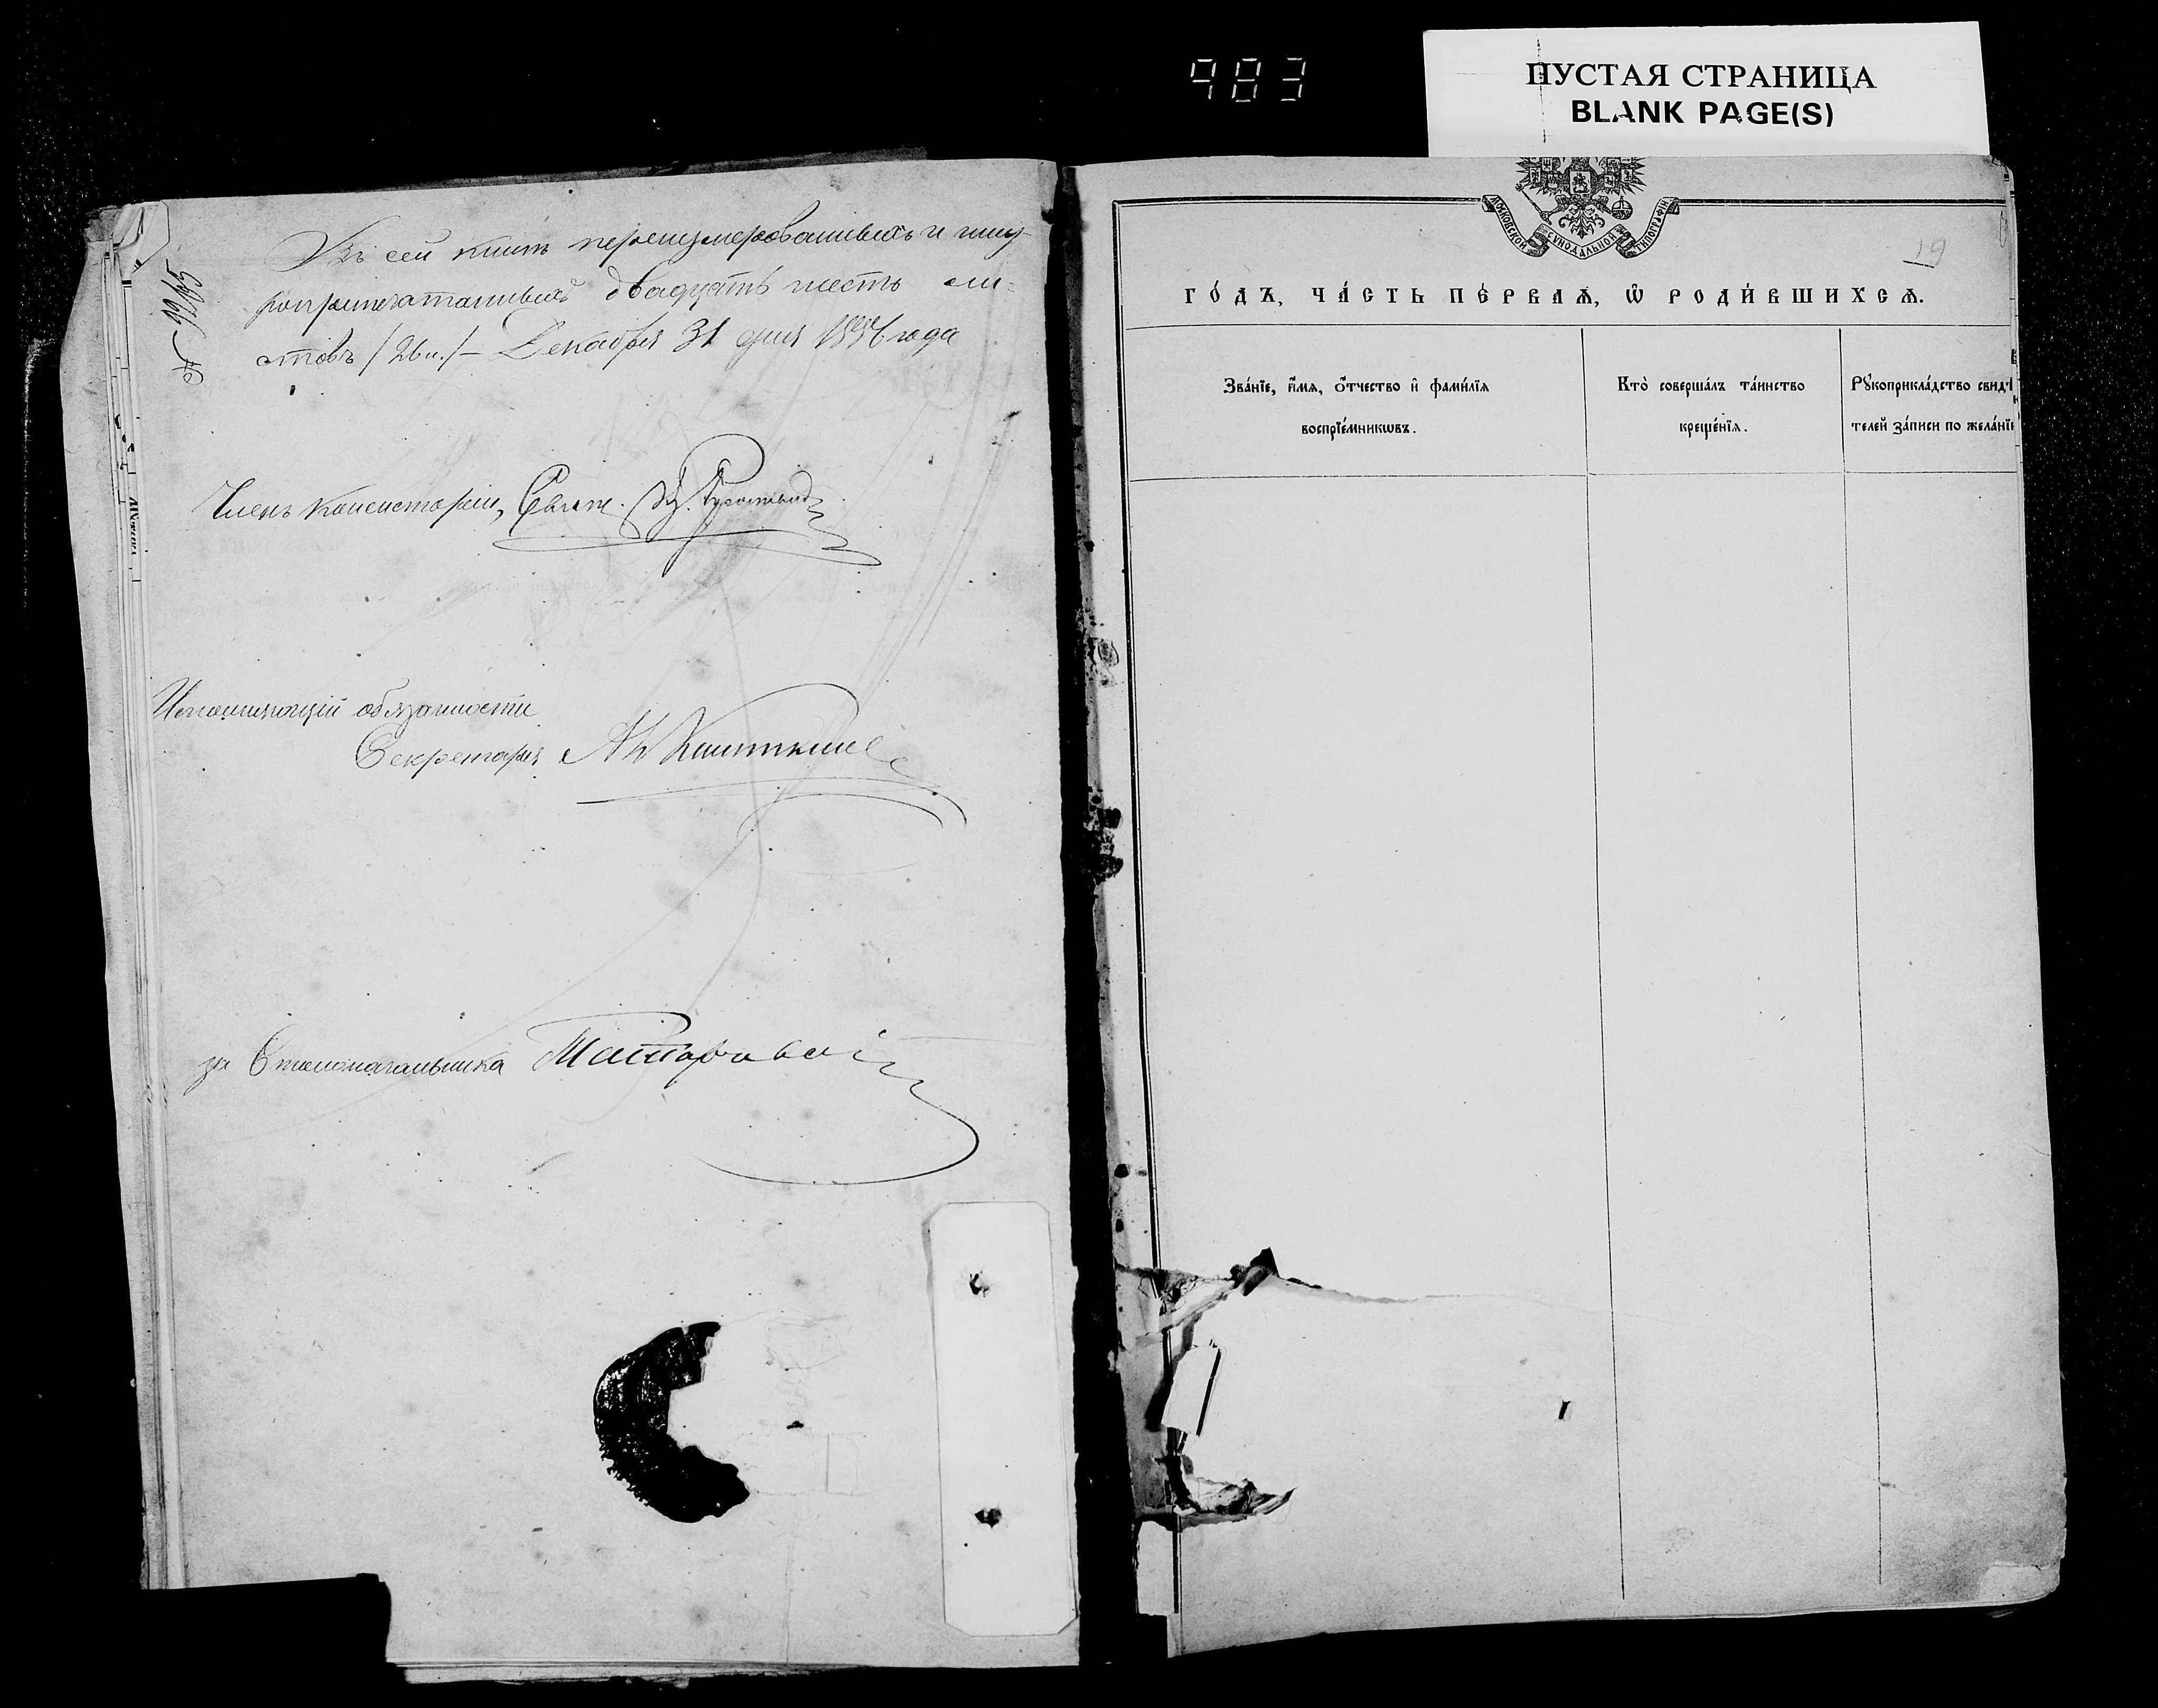 983
ПУСТАЯ СТРАНИЦА
BLANK PAGE(S)
Въ сей книгѣ перенумерованныхъ и шну-
роприпечатанныхъ двадцать шесть ли-
стовъ /26 л./ – Декабря 31 дня года
Членъ Консисторіи, Свящ.
Исполняющій обязанности
Секретаря
за Столоначальника
МОСКОВСКОЙ СѴНОДАЛЬНОЙ ТИПОГРАФІИ
19
го́дъ, ча́сть пе́рваѧ, ѡ҆ роди́вшихсѧ.
Зва́нїе, и҆́мѧ, о҆́тчество и҆ фами́лїѧ
воспрїе́мникѡвъ.
Кто̀ соверша́лъ та́инство
креще́нїѧ.
Рꙋкоприкла́дство свид
телей за́писи по жела́нї